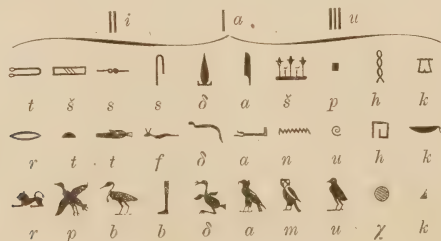 i a. u
t š s s δ a š p h k
r t t f δ a n u h k
r p b b δ a m u χ k